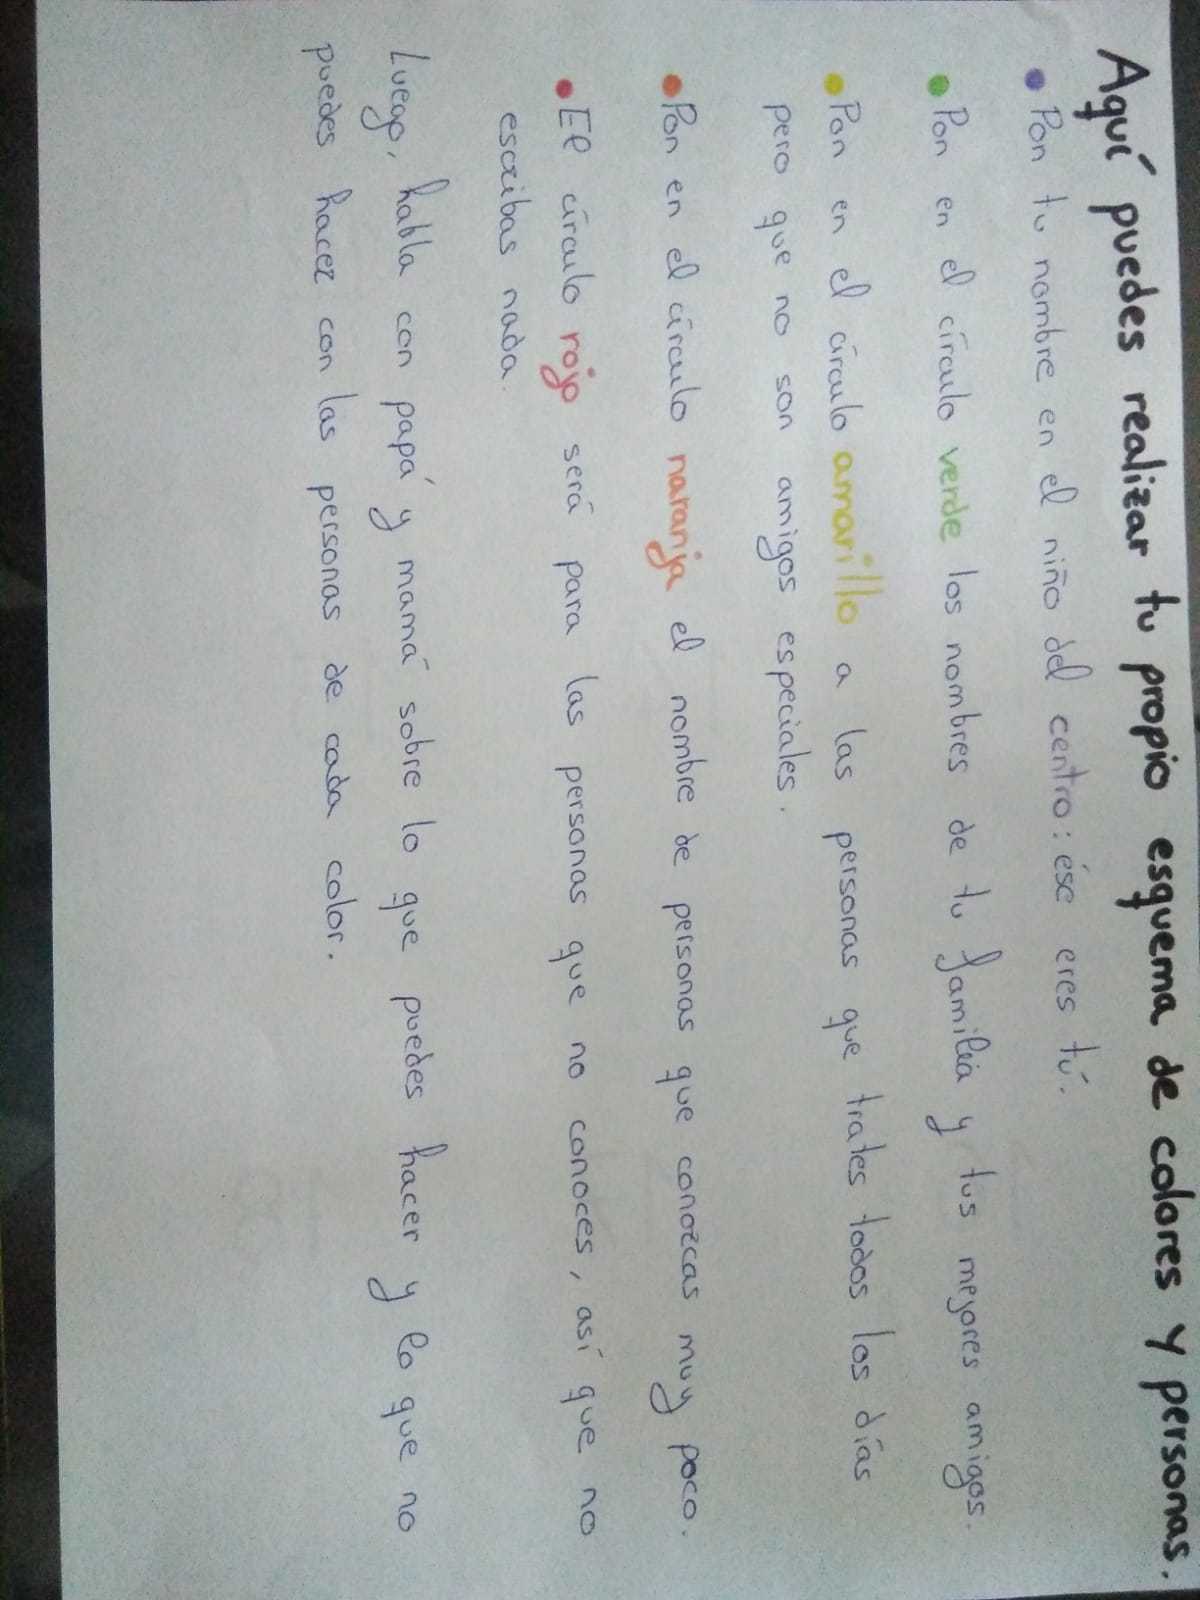 Aquí puedes realizar tu propio esquema de colores y personas.
• Pon tu nombre en el niño del centro: ése eres tú.
• Pon en el círculo verde los nombres de tu familia y tus mejores amigos.
• Pon en el círculo amarillo a las personas que trates todos los días
pero que no son amigos especiales.
• Pon en el círculo naranja el nombre de personas que conozcas muy poco.
• El círculo rojo será para las personas que no conoces, así que no
escribas nada.
Luego, habla con papá y mamá sobre lo que puedes hacer y lo que no
puedes hacer con las personas de cada color.